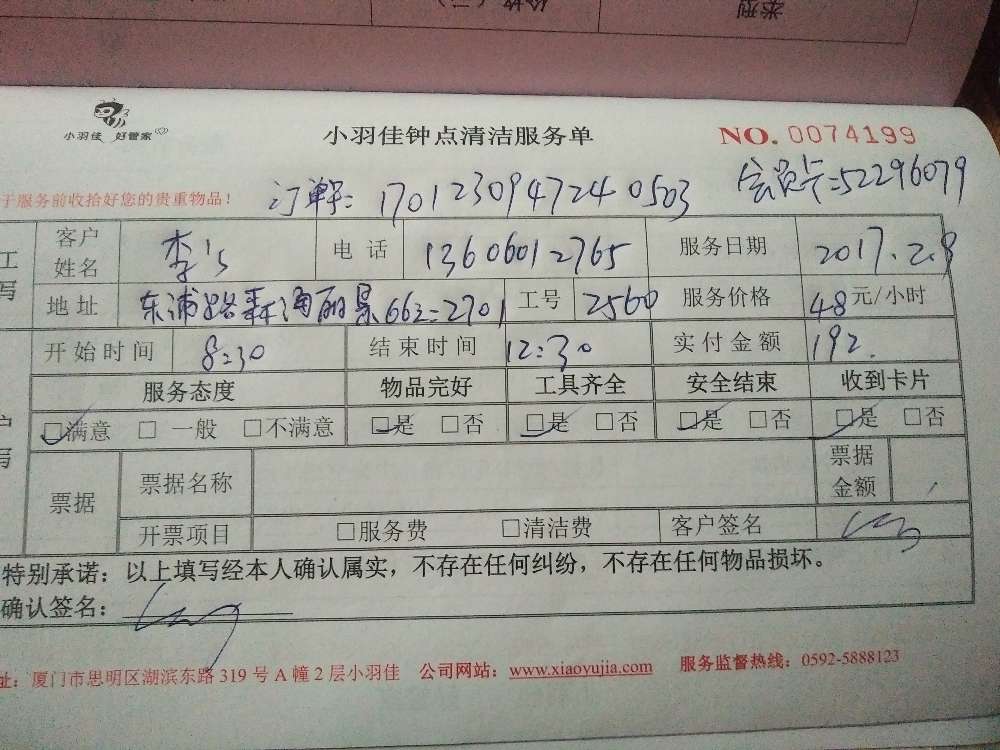 价格（元） 类型
小羽佳 好管家
小羽佳钟点清洁服务单 NO. 0074199
于服务前收拾好您的贵重物品！ 订单号: 1701230947240503 会员卡: 52296079
客户姓名 李's 电话 13606012765 服务日期 2017.2.9
地址 东浦路森海丽景66号2701 工号 2560 服务价格 48元/小时
开始时间 8:30 结束时间 12:30 实付金额 192.
服务态度 物品完好 工具齐全 安全结束 收到卡片
☑满意 □一般 □不满意 ☑是 □否 ☑是 □否 ☑是 □否 ☑是 □否
票据 票据名称 票据金额
开票项目 □服务费 □清洁费 客户签名
特别承诺：以上填写经本人确认属实，不存在任何纠纷，不存在任何物品损坏。
确认签名：
址：厦门市思明区湖滨东路 319 号 A 幢 2 层小羽佳 公司网站：www.xiaoyujia.com 服务监督热线：0592-5888123